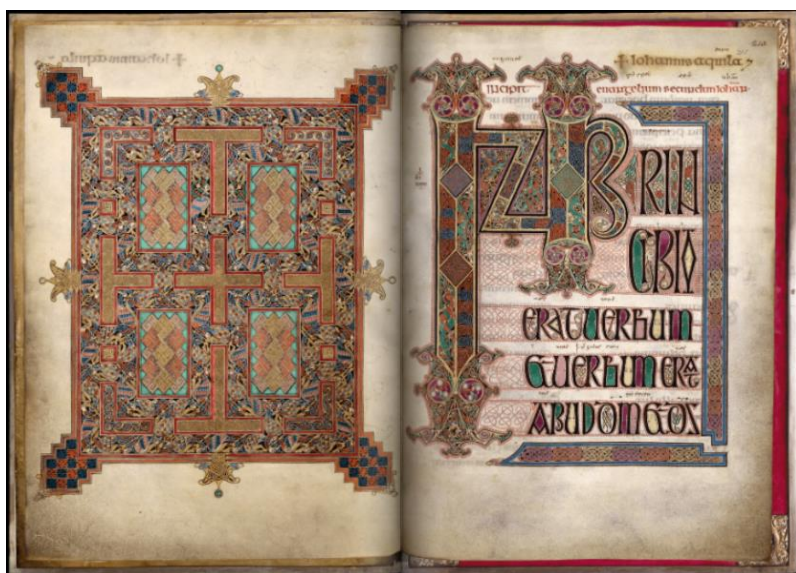 + Iohannis aquila
Incipit euangelium secundum iohan
INPRIN
CIPIO
ERAT UERBUM
ET UERBUM ERAT
APUD DM ET DS